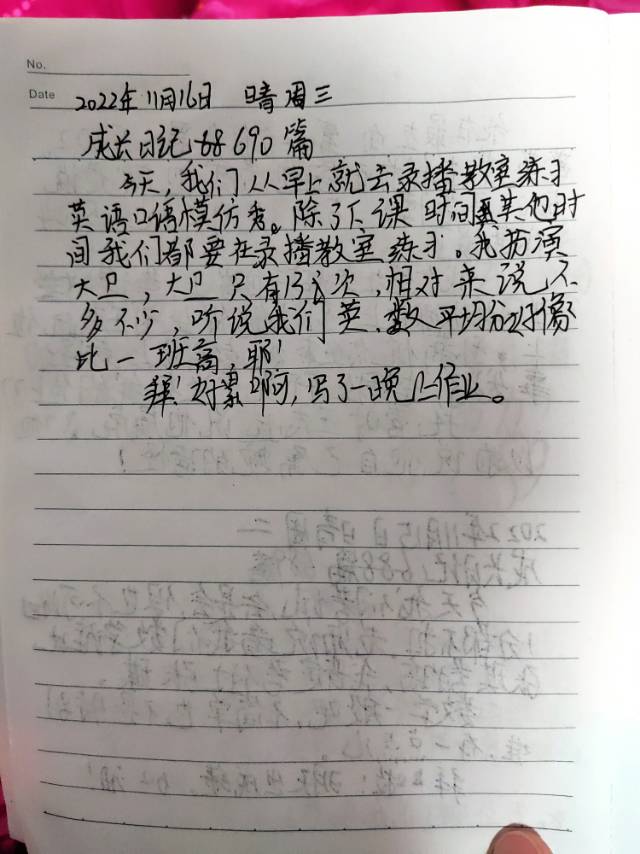 No.
Date 2022年11月16日 晴 周三
成长日记 68 690篇
今天,我们从早上就去录播教室练习
英语口语模仿秀。除了下课时间其他时
间我们都要在录播教室练习。我扮演
大卫,大卫只有13次,相对来说不
多不少,听说我们英、数平均分好像
比一班高,耶!
好累啊,写了一晚上作业。